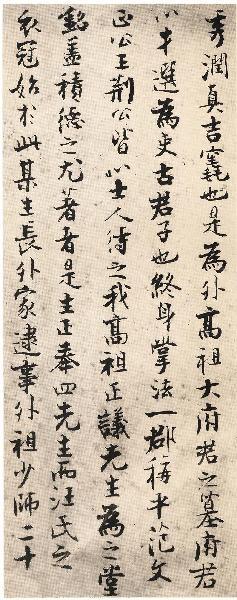 秀潤真吉窀也是為外高祖大府君之墓府君
以才選為吏古君子也終身掌法一郡稱平范文
正公王荆公皆以士人待之我高祖正議先生為之堂
銘盖積德之尤著者是生正奉四先生而汪氏之
衣冠始於此某生長外家逮事外祖少師二十